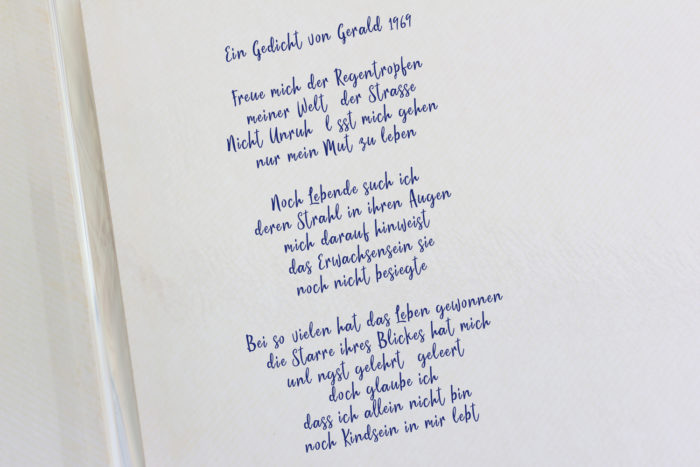 Ein Gedicht von Gerald 1969
Freue mich der Regentropfen
meiner Welt der Strasse
Nicht Unruh l sst mich gehen
nur mein Mut zu leben
Noch Lebende such ich
deren Strahl in ihren Augen
mich darauf hinweist
das Erwachsensein sie
noch nicht besiegte
Bei so vielen hat das Leben gewonnen
die Starre ihres Blickes hat mich
unl ngst gelehrt geleert
doch glaube ich
dass ich allein nicht bin
noch Kindsein in mir lebt